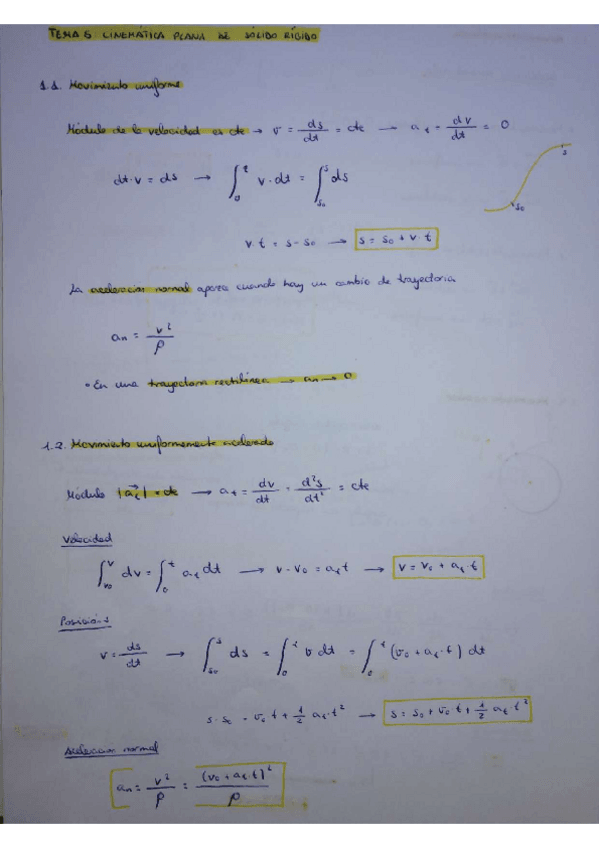 TEMA 5 CINEMÁTICA PLANA DE SÓLIDO RÍGIDO
1.1. Movimiento uniforme
Módulo de la velocidad es cte → v = ds/dt = cte → a_t = dv/dt = 0
dt·v = ds → ∫₀ᵗ v·dt = ∫_{s₀}^{s} ds
s
s₀
v·t = s-s₀ → s = s₀ + v·t
La aceleración normal aparece cuando hay un cambio de trayectoria
a_n = v²/ρ
• En una trayectoria rectilínea → a_n → 0
1.2. Movimiento uniformemente acelerado
Módulo |a⃗_t| = cte → a_t = dv/dt = d²s/dt² = cte
Velocidad
∫_{v₀}^{v} dv = ∫₀ᵗ a_t dt → v-v₀ = a_t t → v = v₀ + a_t·t
Posición
v = ds/dt → ∫_{s₀}^{s} ds = ∫₀ᵗ v dt = ∫₀ᵗ (v₀ + a_t·t) dt
s-s₀ = v₀t + 1/2 a_t·t² → s = s₀ + v₀t + 1/2 a_t·t²
Aceleración normal
a_n = v²/ρ = (v₀ + a_t·t)²/ρ